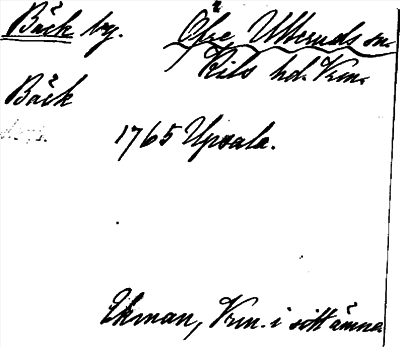 Bäck by. Öfre Ulleruds sn.
Kils hd. Vrm.
Bäck
1765 Upsala.
Ekman, Vrm. i sitt ämne